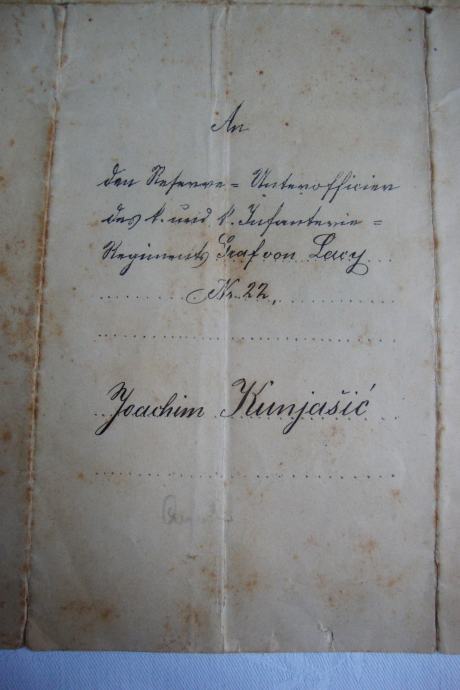 An
den Reserve= Unterofficier
des k. und k. Infanterie=
Regiments Graf von Lacy
Nr. 22,
Joachim Kunjašić